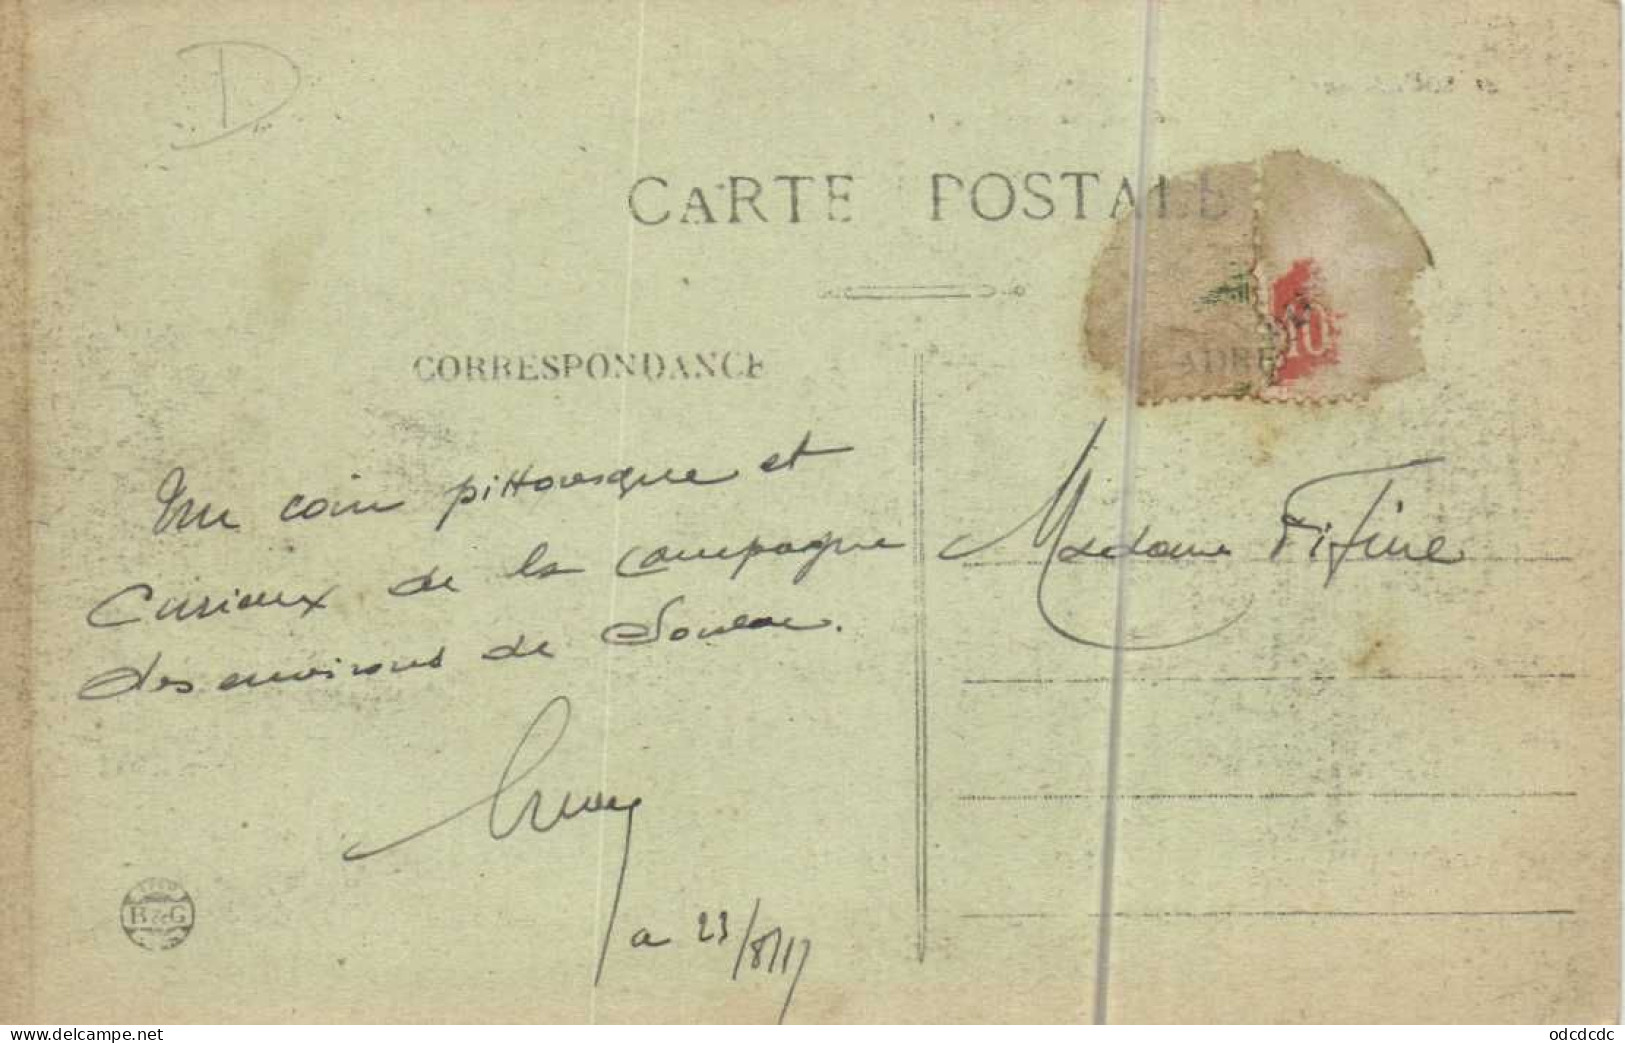 D
CARTE POSTALE
CORRESPONDANCE
ADRE
10
Un coin pittoresque et
Curieux de la campagne
des environs de Soulac.
Madame Fifine
a 23/8/17
B & G
www.delcampe.net
odcdcdc